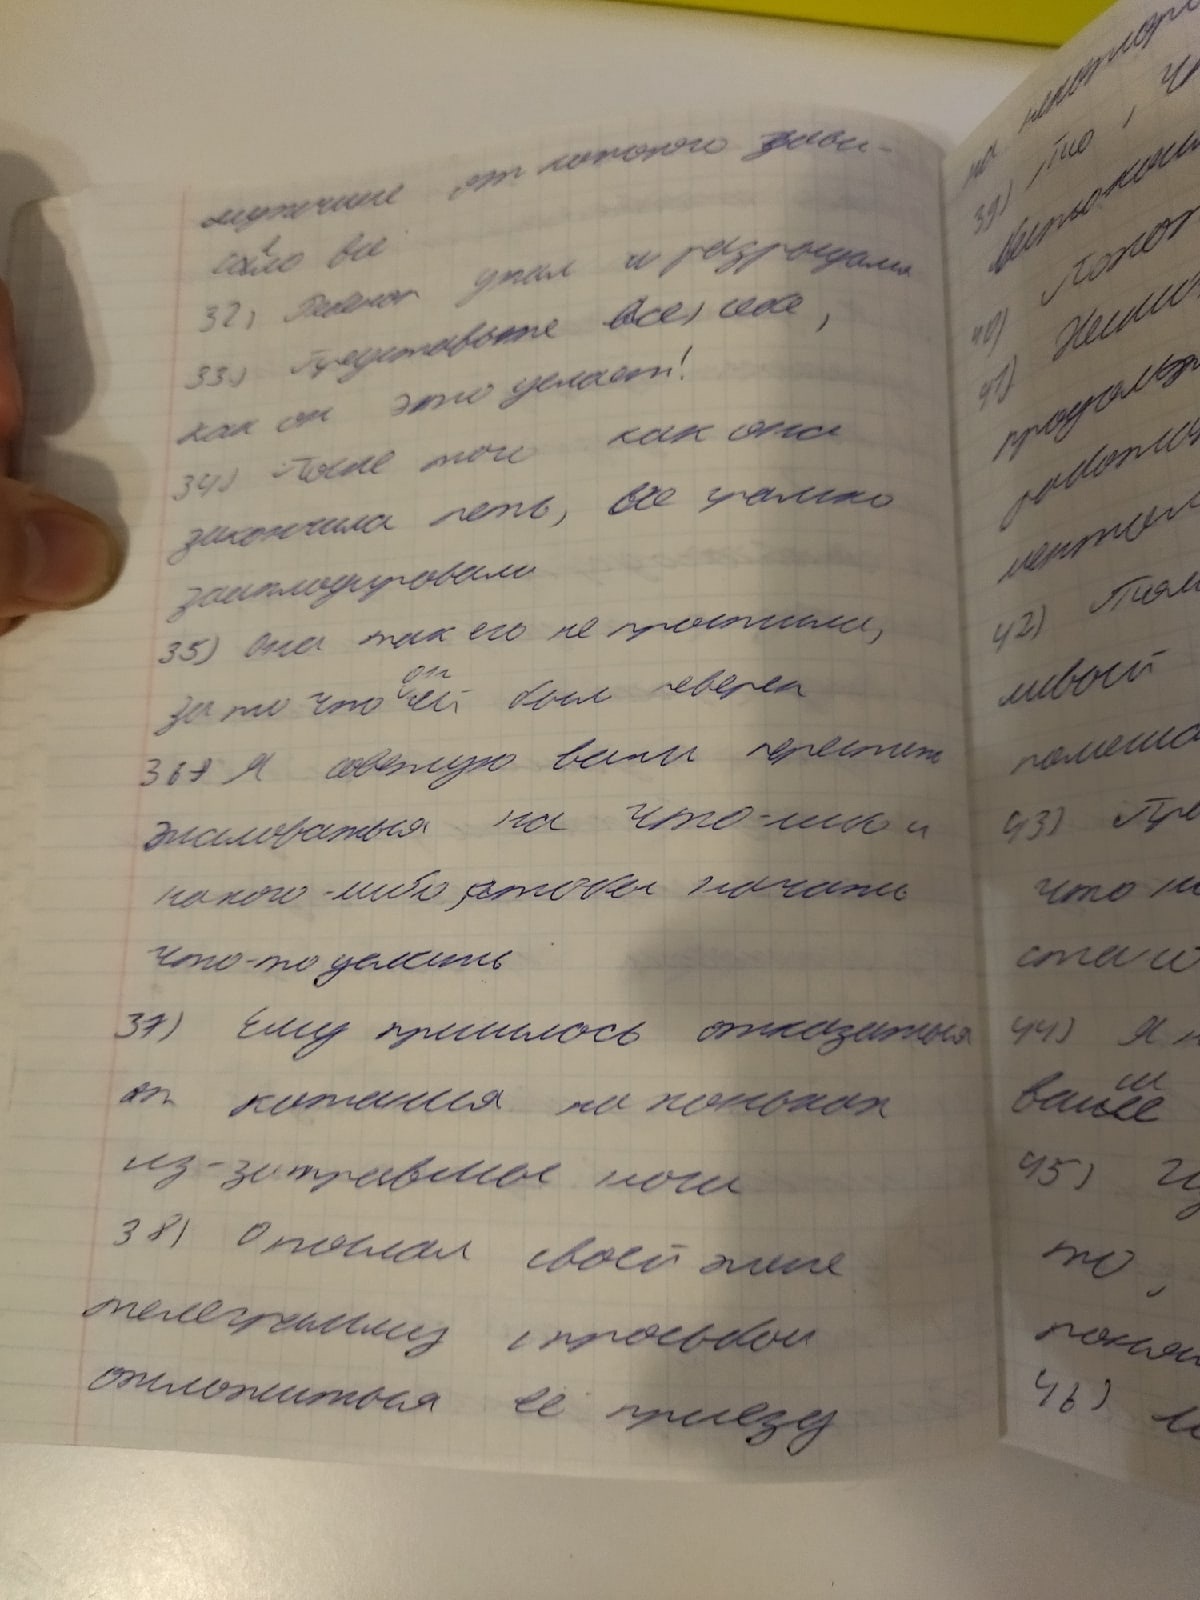 мужчине от которого зави-
село все
32) Ребенок упал и разрыдался
33) Представьте все) себе,
как он это делает!
34) После того как она
закончила петь, все громко
зааплодировали
35) Она так его не простила,
за то что он ей был неверен
36) Я советую вам перестать
жаловаться на что-либо и
на кого-либо, чтобы начать
что-то делать
37) Ему пришлось отказаться
от катания на коньках
из-за травмы ноги
38) О послал своей жене
телеграмму с просьбой
отложиться её приезд
на
39) что
40)
41)
42)
мивой
43) Пре
что
44) Я
ваше
ш
45)
то,
46)